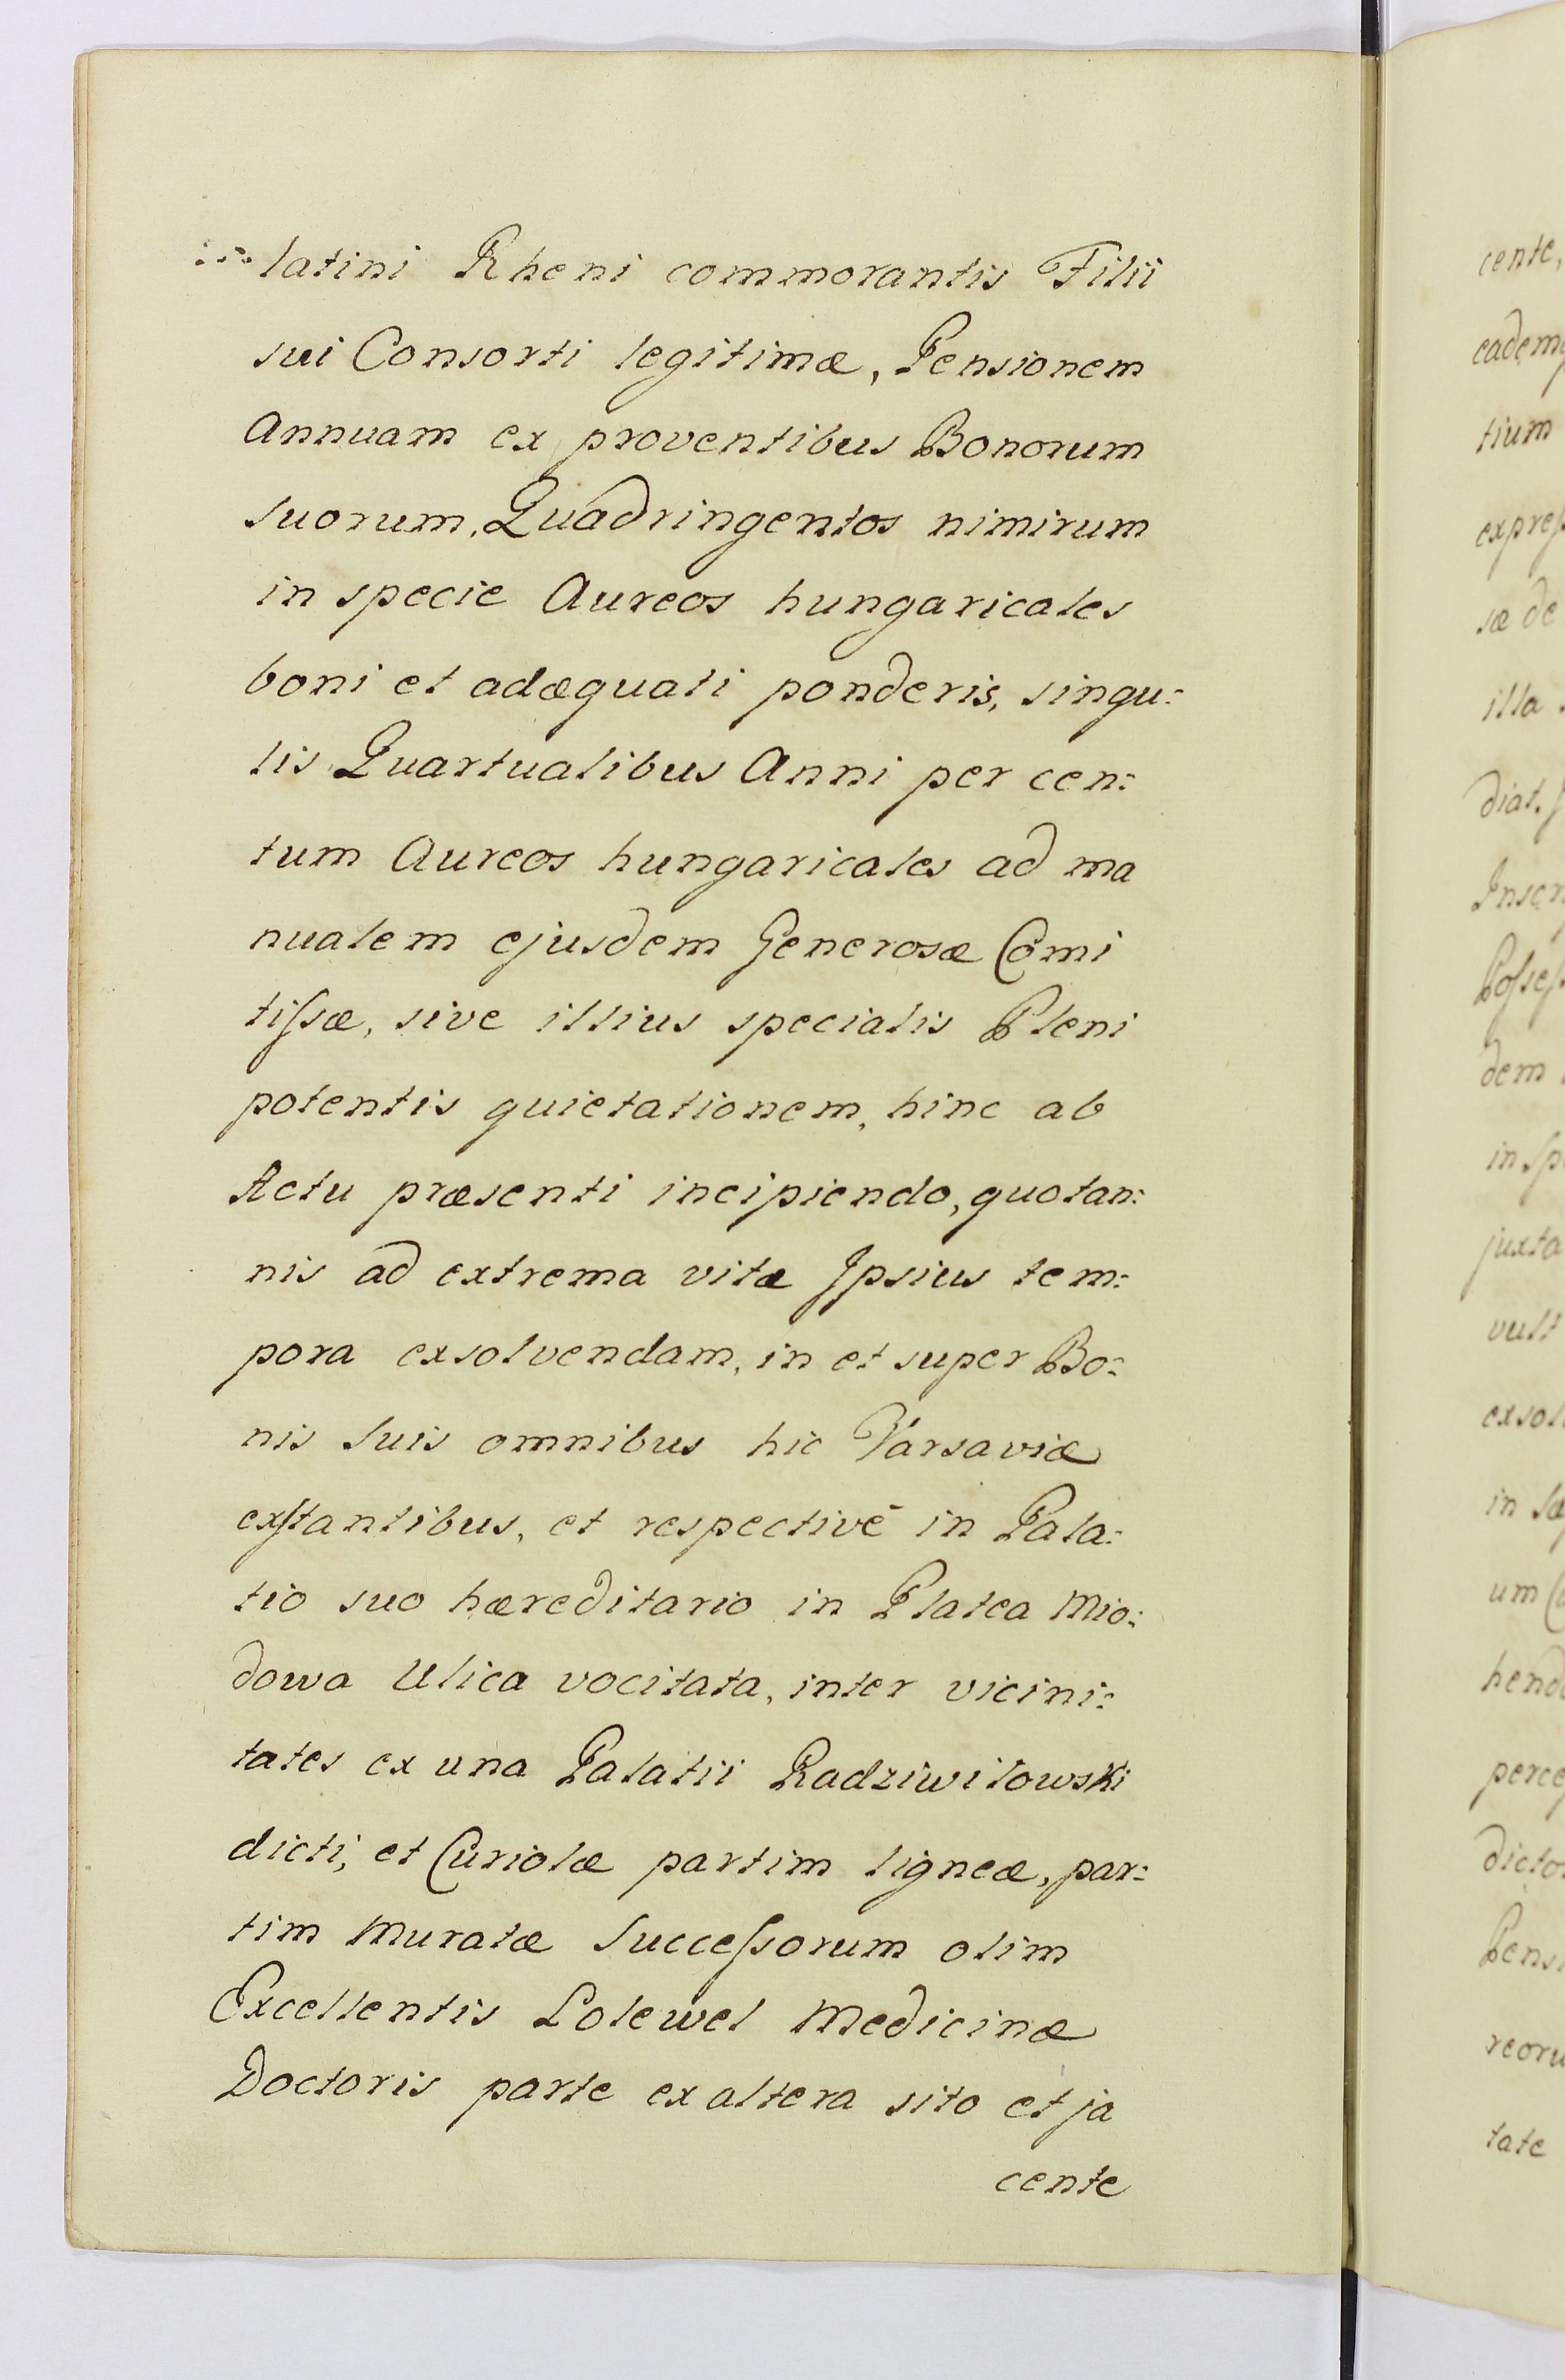 latini Rheni commorantis Filii
sui Consorti legitimæ, Pensionem
Annuam ex proventibus Bonorum
suorum, Quadringentos nimirum
in specie Aureos hungaricales
boni et adæquati ponderis, singu:
lis Quartualibus Anni per cen:
tum Aureos hungaricales ad ma
nualem ejusdem Generosæ Comi
tiſsæ, sive illius specialis Pleni
potentis quietationem, hinc ab
Actu præsenti incipiendo, quotan:
nis ad extrema vitæ Ipsius tem:
pora exsolvendam, in et super Bo:
nis suis omnibus hic Varsaviæ
exſtantibus, et respectivè in Pala:
tio suo hæreditario in Platea Mio:
dowa Ulica vocitata, inter vicini:
tates ex una Palatii Radziwiłowski
dicti, et Curiolæ partim ligneæ, par:
tim Muratæ Succeſsorum olim
Excellentis Lolewel Medicinæ
Doctoris parte ex altera sito et ja
cente
cente,
eadem
tium
expreſ
sæ de
illa
diat.
Inscr
Poſseſ
dem
in sp
juxta
vult
exsol
in
um
hend
perce
dicto
Pens
reoru
tate